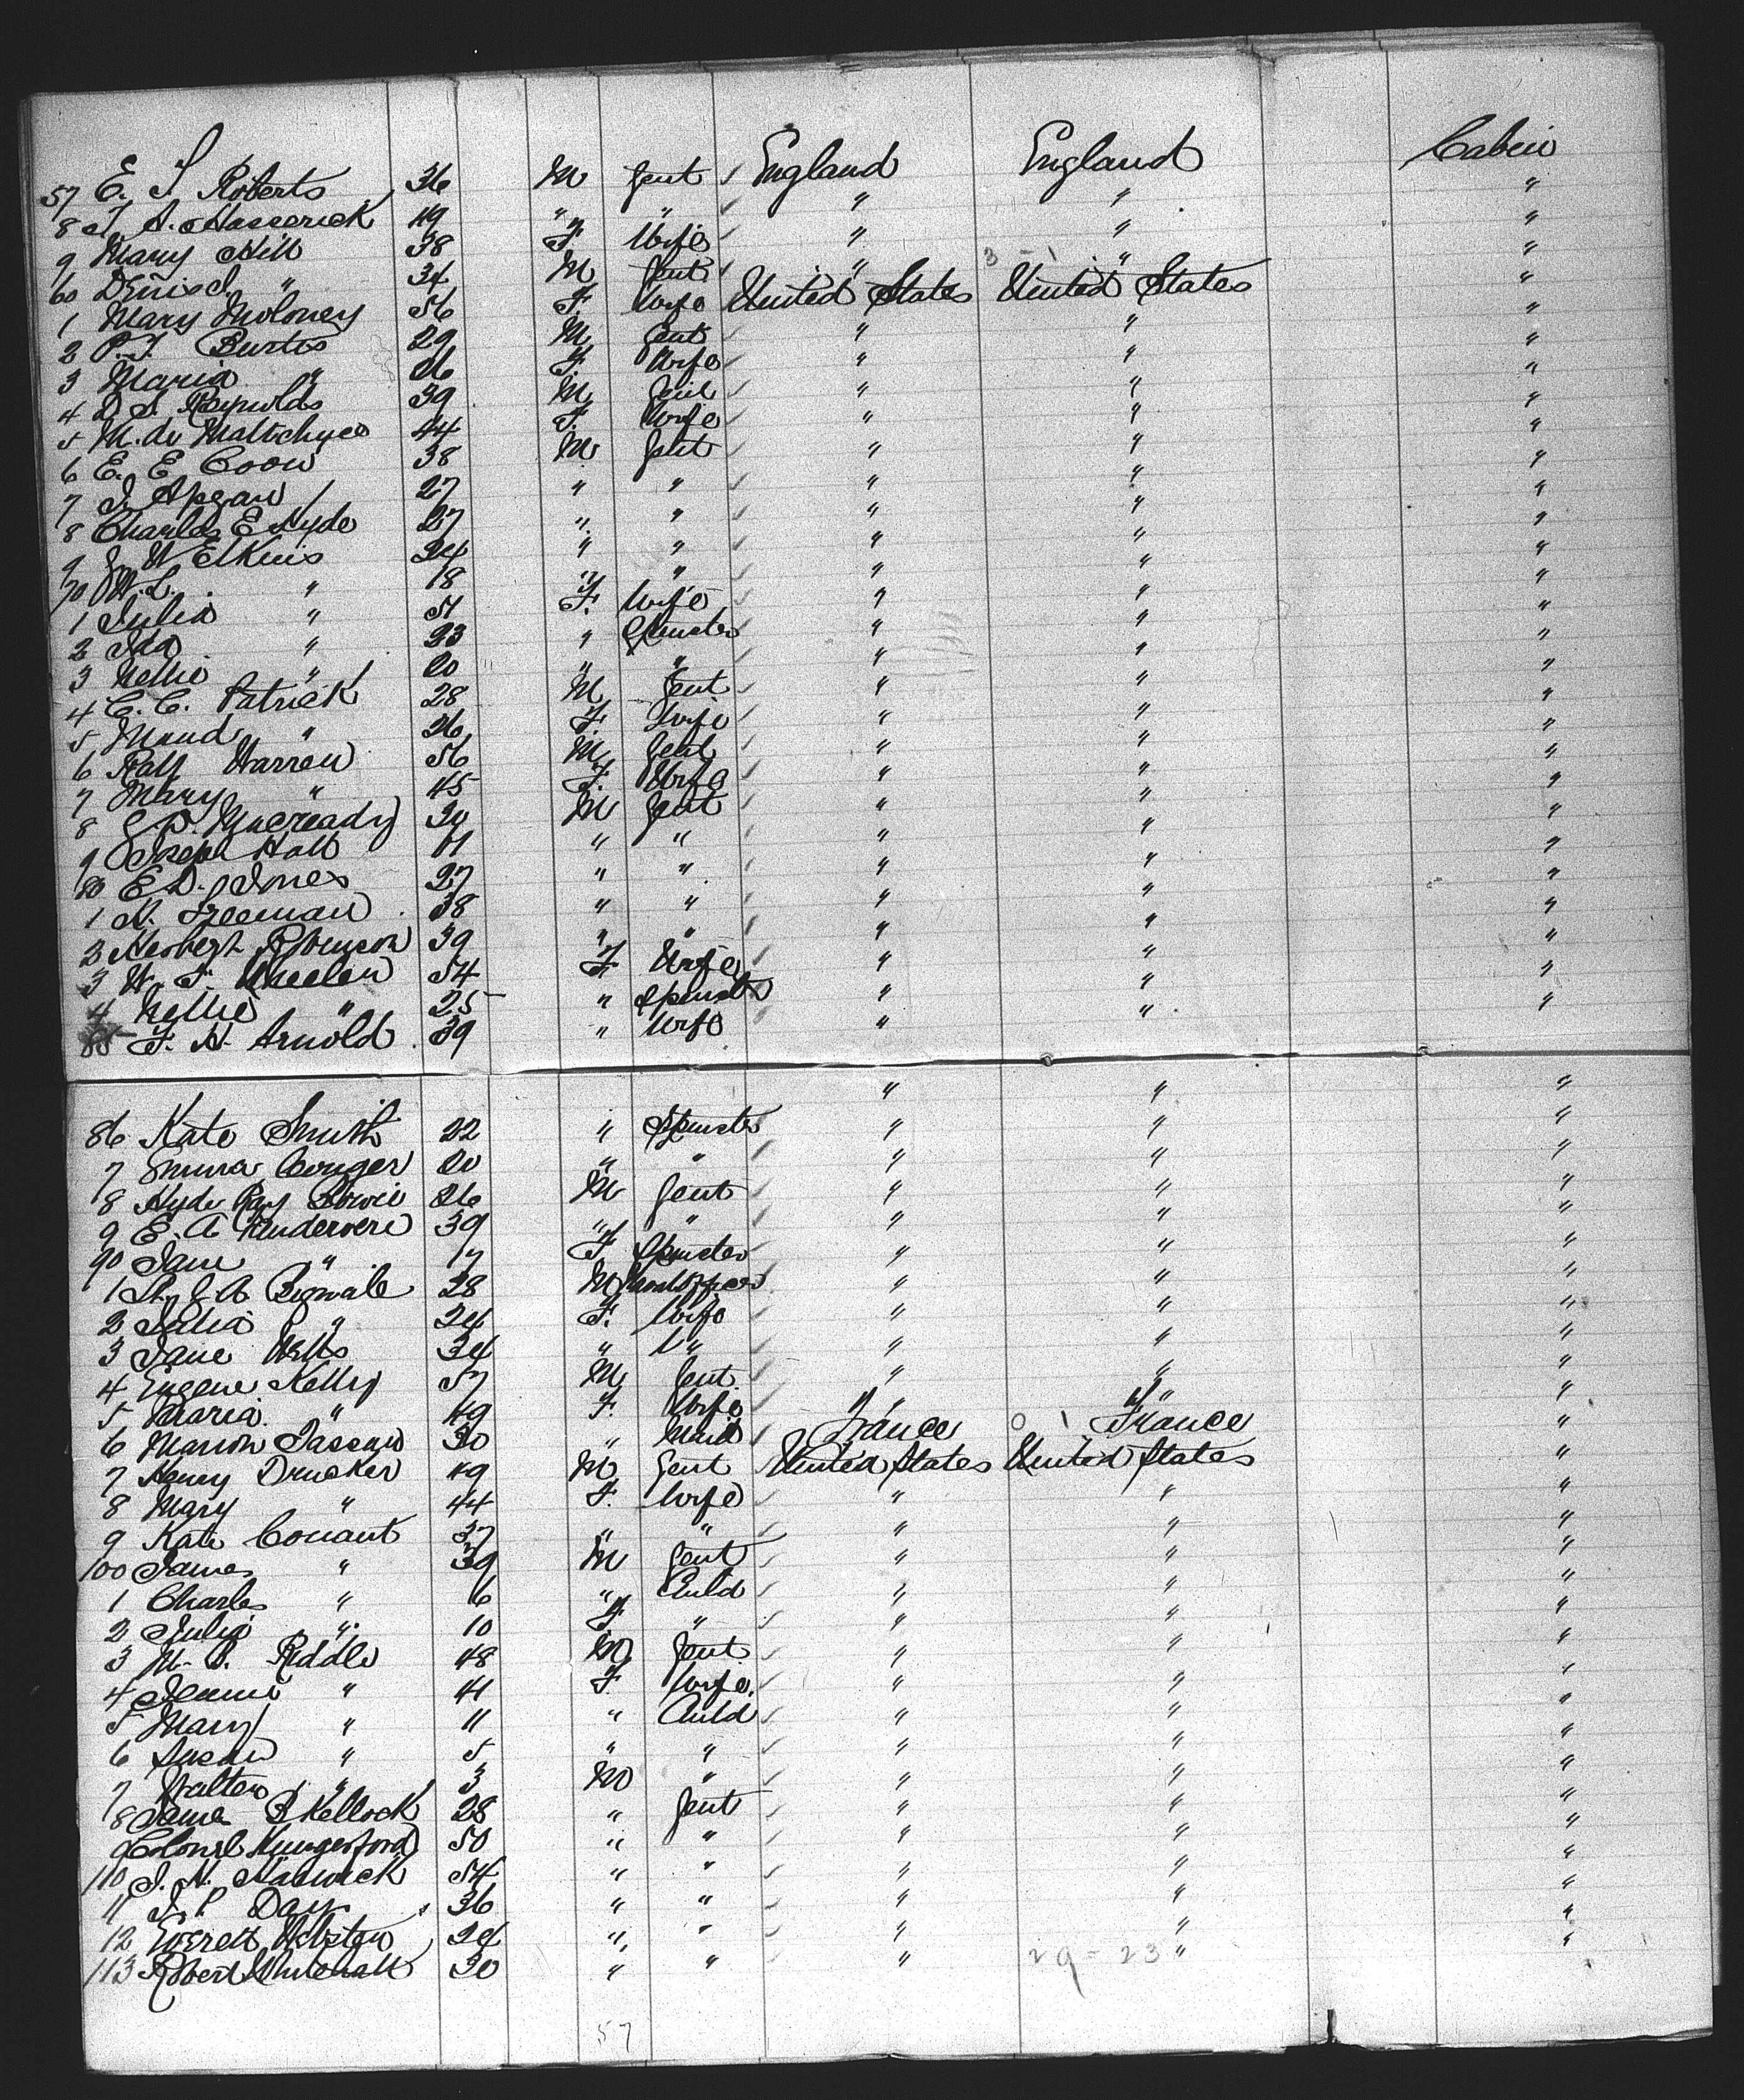 57 E. S Roberts 36 M Gent England England Cabin
8 J. A. Hasserick 49 " " " " "
9 Mary Hill 38 F Wife " " "
60 " 34 M Gent " " "
1 Mary Moloney 56 F. Wife United States United States "
2 P. J. Burtis 29 M Gent " " "
3 Maria " 26 F. Wife " " "
4 D S. Reynolds 39 M Gent " " "
5 M. de 44 F. Wife " " "
6 E. E. Coon 38 M Gent " " "
7 J. Apgar 27 " " " " "
8 Charles E Hyde 27 " " " " "
9 W Elkins 24 " " " " "
70 W. L. " 18 " " " " "
1 Julia " 51 F. Wife " " "
2 Ida " 23 " Spinster " " "
3 Nellie " 20 " " " " "
4 C. C. Patrick 28 M Gent " " "
5 Maud " 26 F. Wife " " "
6 Ralf Warren 56 M Gent " " "
7 Mary " 45 F. Wife " " "
8 Macready 30 M Gent " " "
9 Joseph Hall 41 " " " " "
80 E. D. Jones 27 " " " " "
1 N. Freeman 38 " " " " "
2 Herbert Robinson 39 " " " " "
3 W. F. Wheelen 54 F Wife " " "
4 Nellie " 25 " Spinster " " "
85 F. H. Arnold 39 " Wife " " "
86 Kate Smith 22 " Spinster " " "
7 Emma Conger 20 " " " " "
8 Hyde Ray Bowie 26 M Gent " " "
9 E. A Vandervere 39 " " " " "
90 Jane " 17 F. Spinster " " "
1 28 M " " "
2 Julia " 24 F. Wife " " "
3 Jane Wells 34 " " " " "
4 Eugene Kelly 57 M Gent. " " "
5 Maria " 49 F. Wife " " "
6 Marion 30 " Maid France France "
7 Henry Drucker 49 M Gent United States United States "
8 Mary " 44 F. Wife " " "
9 Kate Conant 37 " " " " "
100 James " 39 M Gent " " "
1 Charles " 6 " Child " " "
2 Julia " 10 F. " " " "
3 M. B. Riddle 48 M Gent " " "
4 Jennie " 41 F. Wife. " " "
5 Mary " 11 " Child " " "
6 Susan " 5 " " " " "
7 Walter " 3 M " " " "
8 James B Kellock 28 " Gent " " "
9 Colonel Hungerford 50 " " " " "
110 J. H. 54 " " " " "
11 Day 36 " " " " "
12 Everett Webster 24 " " " " "
113 Robert 30 " " " 29 - 23 " "
57